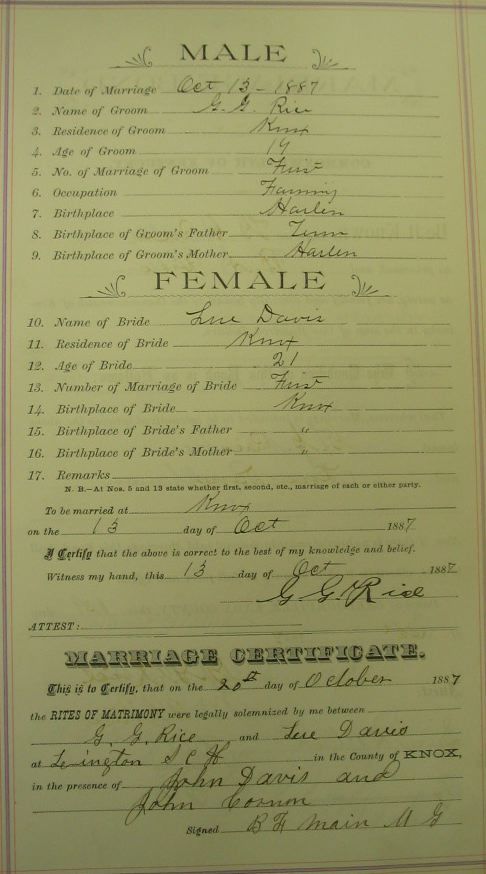 MALE
1. Date of Marriage Oct 13 - 1887
2. Name of Groom G. G. Rice
3. Residence of Groom Knox
4. Age of Groom 19
5. No. of Marriage of Groom First
6. Occupation Farming
7. Birthplace Harlen
8. Birthplace of Groom's Father Tenn
9. Birthplace of Groom's Mother Harlen
FEMALE
10. Name of Bride Lue Davis
11. Residence of Bride Knox
12. Age of Bride 21
13. Number of Marriage of Bride First
14. Birthplace of Bride Knox
15. Birthplace of Bride's Father "
16. Birthplace of Bride's Mother "
17. Remarks
N. B.—At Nos. 5 and 13 state whether first, second, etc., marriage of each or either party.
To be married at Knox
on the 13 day of Oct 1887
I Certify that the above is correct to the best of my knowledge and belief.
Witness my hand, this 13 day of Oct 1887
G. G. Rice
ATTEST:
MARRIAGE CERTIFICATE.
This is to Certify, that on the 20th day of October 1887
the RITES OF MATRIMONY were legally solemnized by me between
G. G. Rice and Lue Davis
at in the County of KNOX,
in the presence of John Davis and
John
Signed B F Main M G